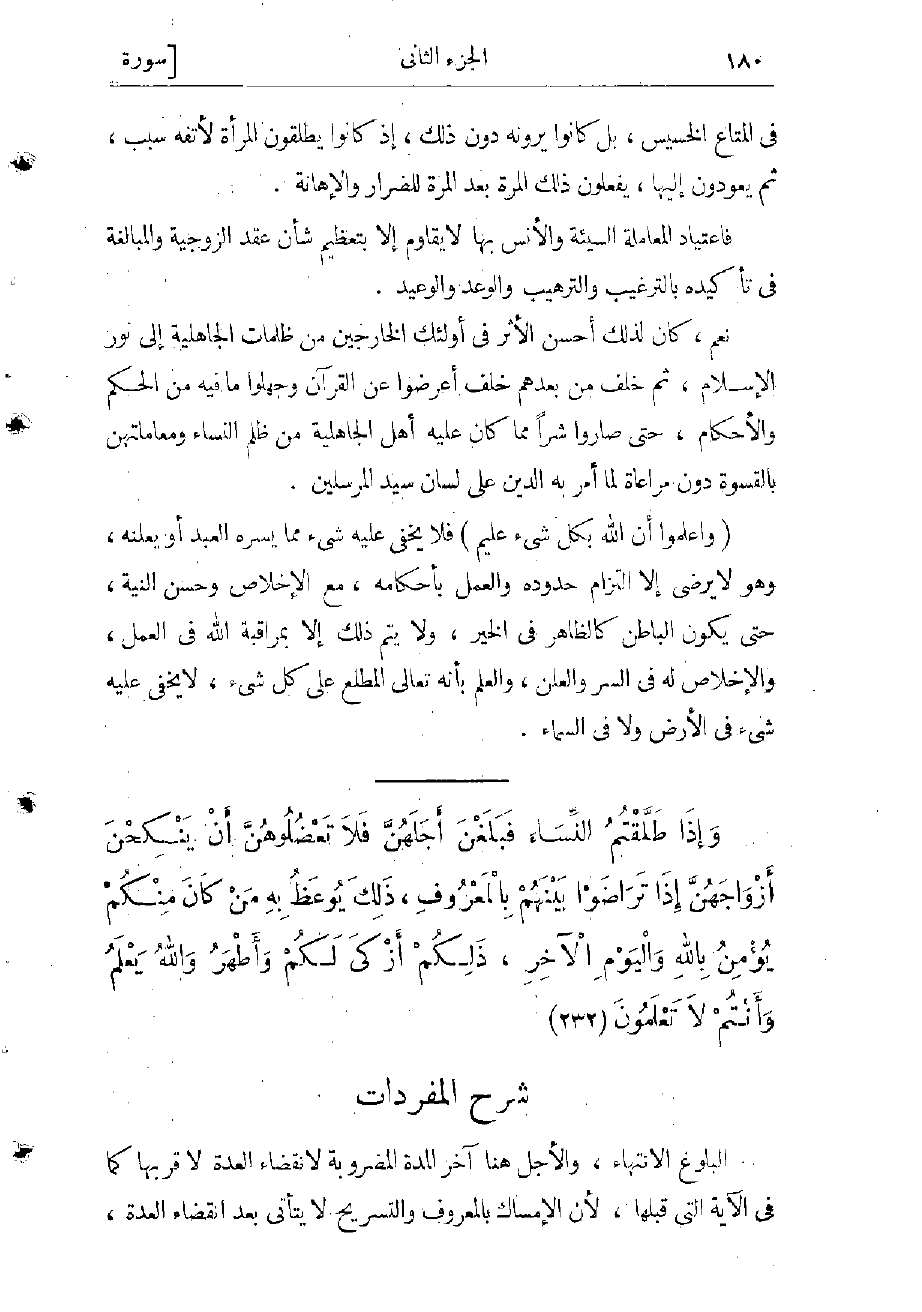 ١٨٠ الجزء الثانى [سورة
فى المتاع الخسيس ، بل كانوا يرونه دون ذلك ، إذ كانوا يطلقون المرأة لأتفه سبب ،
ثم يعودون إليها ، يفعلون ذلك المرة بعد المرة للضرار والإهانة .
فاعتياد المعاملة السيئة والأنس بها لايقاوم إلا بتعظيم شأن عقد الزوجية والمبالغة
فى تأكيده بالترغيب والترهيب والوعد والوعيد .
نعم ، كان لذلك أحسن الأثر فى أولئك الخارجين من ظلمات الجاهلية إلى نور
الإسلام ، ثم خلف من بعدهم خلف أعرضوا عن القرآن وجهلوا ما فيه من الحكم
والأحكام ، حتى صاروا شراً مما كان عليه أهل الجاهلية من ظلم النساء ومعاملتهن
بالقسوة دون مراعاة لما أمر به الدين على لسان سيد المرسلين .
( واعلموا أن الله بكل شىء عليم ) فلا يخفى عليه شىء مما يسره العبد أو يعلنه ،
وهو لايرضى إلا التزام حدوده والعمل بأحكامه ، مع الإخلاص وحسن النية ،
حتى يكون الباطن كالظاهر فى الخير ، ولا يتم ذلك إلا بمراقبة الله فى العمل ،
والإخلاص له فى السر والعلن ، والعلم بأنه تعالى المطلع على كل شىء ، لايخفى عليه
شىء فى الأرض ولا فى السماء .
وَإِذَا طَلَّقْتُمُ النِّسَاءَ فَبَلَغْنَ أَجَلَهُنَّ فَلاَ تَعْضُلُوهُنَّ أَنْ يَنْكِحْنَ
أَزْوَاجَهُنَّ إِذَا تَرَاضَوْا بَيْنَهُمْ بِالْمَعْرُوفِ ، ذَلِكَ يُوعَظُ بِهِ مَنْ كَانَ مِنْكُمْ
يُؤْمِنُ بِاللهِ وَالْيَوْمِ الْآخِرِ ، ذَلِكُمْ أَزْكَىَ لَكُمْ وَأَطْهَرُ وَاللهُ يَعْلَمُ
وَأَنْتُمْ لاَ تَعْلَمُونَ (٢٣٢)
شرح المفردات
البلوغ الانتهاء ، والأجل هنا آخر المدة المضروبة لانقضاء العدة لا قربها كما
فى الآية التى قبلها ، لأن الإمساك بالمعروف والتسريح لا يتأتى بعد انقضاء العدة ،